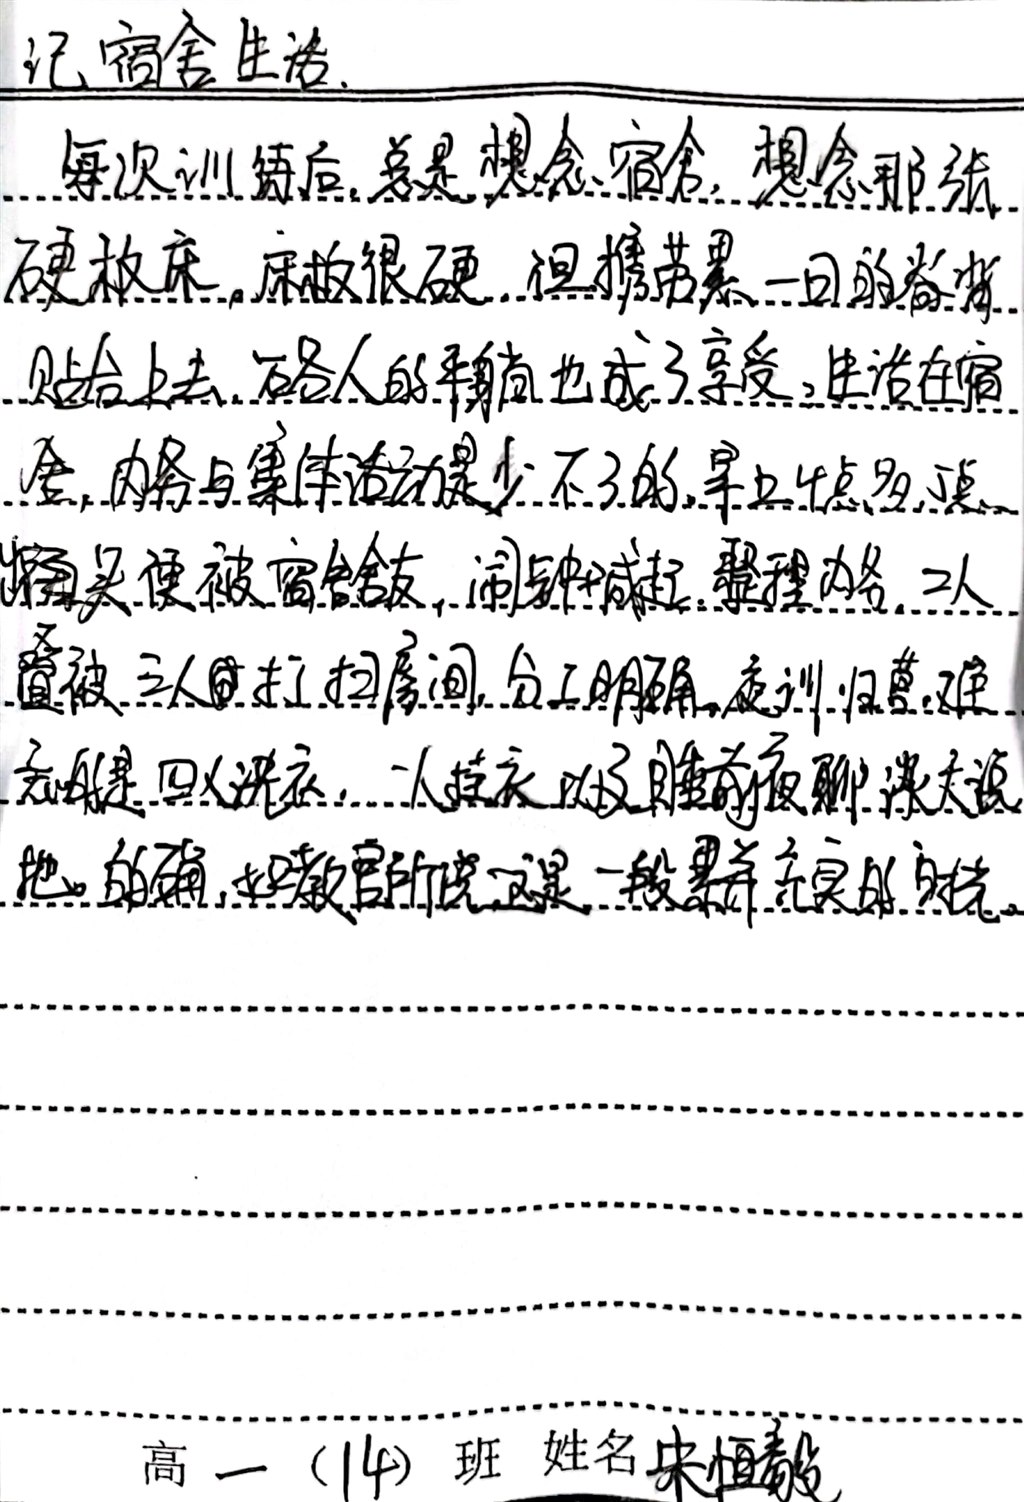 记宿舍生活.
每次训练后,总是想念宿舍,想念那张
硬板床,床板很硬,但携带累一日的脊背
贴台上去,硌人的平躺也成了享受。生活在宿
舍,内务与集体活动是少不了的,早上4点多,
头便被宿舍舍友,闹钟喊起整理内务,二人
叠被三人打扫房间,分工明确。夜训归营,难
忘的是四人洗衣,一人挂衣以及睡前夜聊谈天说
地。的确,如教官所说这是一段累并充实的时光。
高一(14)班 姓名宋恒毅